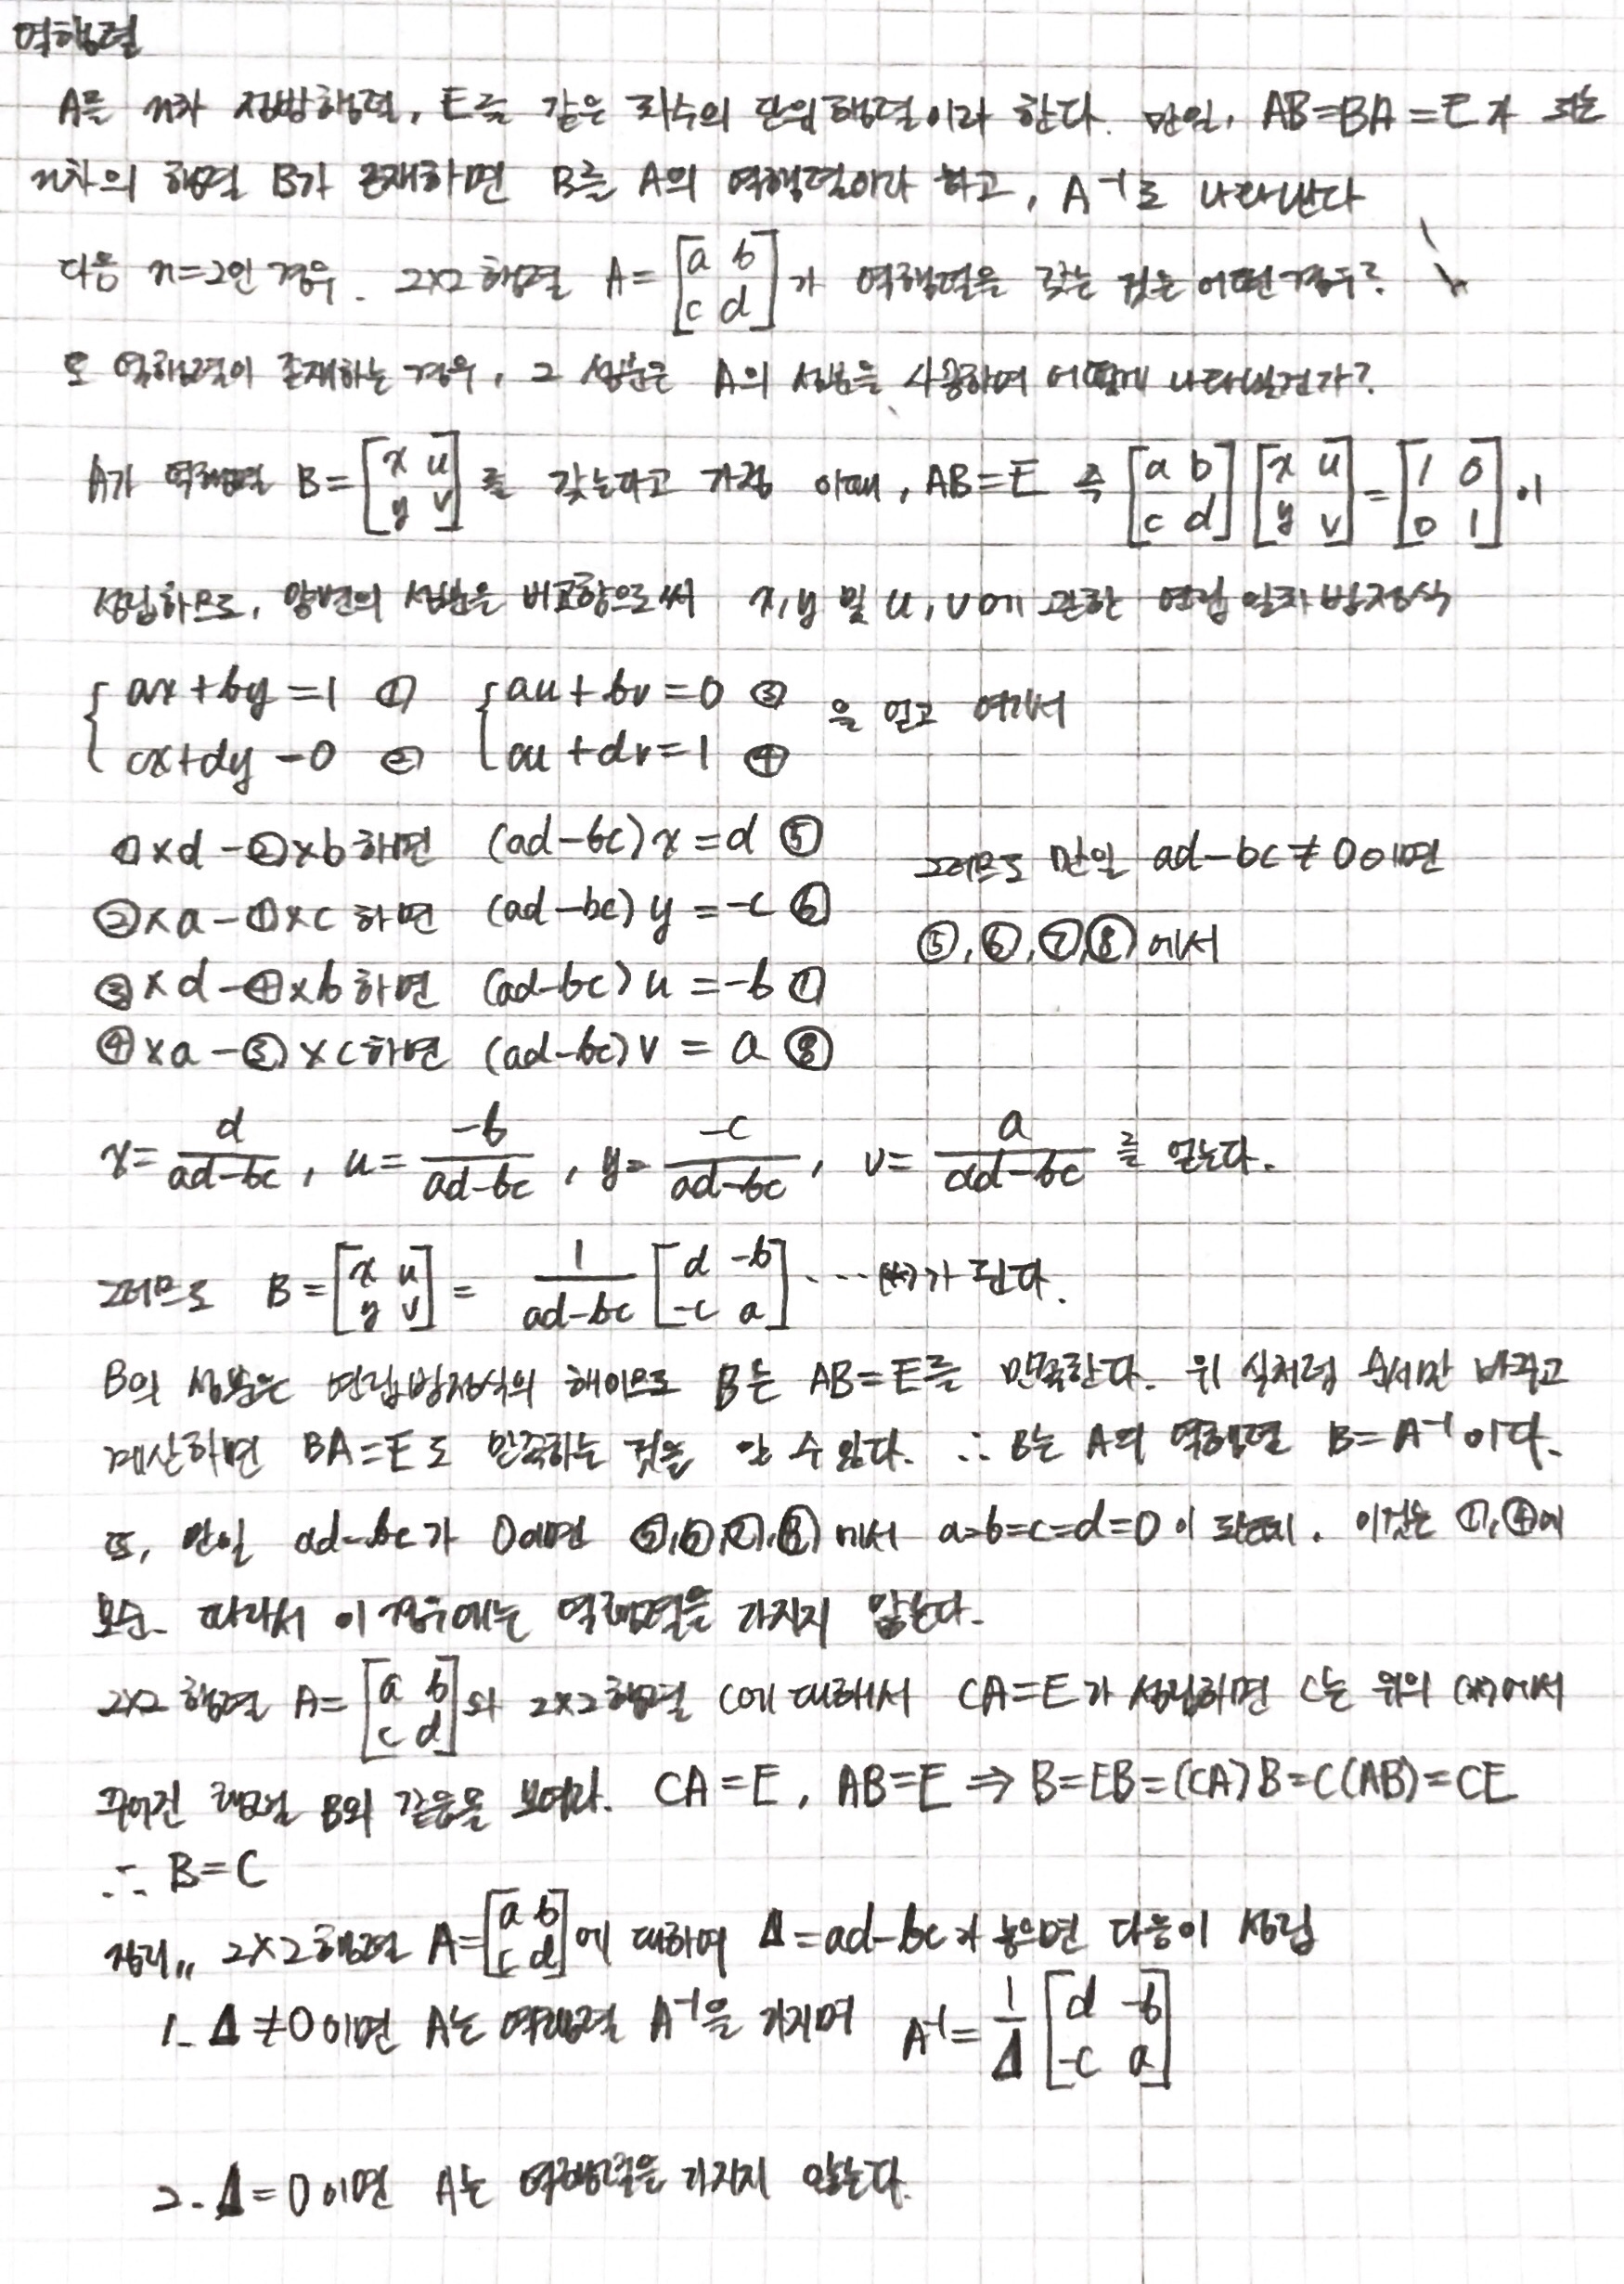 역행렬
A를 n차 정방행렬, E를 같은 차수의 단위행렬이라 한다. 만일, AB=BA=E가 되는
n차의 행렬 B가 존재하면 B를 A의 역행렬이라 하고, A⁻¹로 나타낸다
다음 n=2인 경우. 2×2 행렬 A=[a b; c d]가 역행렬을 갖는 것은 어떤 경우?
또 역행렬이 존재하는 경우, 그 성분은 A의 성분을 사용하여 어떻게 나타낼건가?
A가 역행렬 B=[x u; y v]를 갖는다고 가정 이때, AB=E 즉 [a b; c d][x u; y v]=[1 0; 0 1]이
성립하므로, 양변의 성분을 비교함으로써 x,y 및 u,v에 관한 연립 일차 방정식
{ax+by=1 ① {au+bv=0 ③ 을 얻고 여기서
cx+dy=0 ② cu+dv=1 ④
①×d-②×b 하면 (ad-bc)x=d ⑤ 그러므로 만일 ad-bc≠0이면
②×a-①×c 하면 (ad-bc)y=-c ⑥ ⑤,⑥,⑦,⑧에서
③×d-④×b 하면 (ad-bc)u=-b ⑦
④×a-③×c 하면 (ad-bc)v=a ⑧
x=d/(ad-bc), u=-b/(ad-bc), y=-c/(ad-bc), v=a/(ad-bc) 를 얻는다.
그러므로 B=[x u; y v]=1/(ad-bc) [d -b; -c a] ····(*)가 된다.
B의 성분은 연립방정식의 해이므로 B는 AB=E를 만족한다. 위 식처럼 순서만 바꾸고
계산하면 BA=E도 만족하는 것을 알 수 있다. ∴ B는 A의 역행렬 B=A⁻¹이다.
또, 만일 ad-bc가 0이면 ⑤,⑥,⑦,⑧에서 a=b=c=d=0이 되는데. 이것은 ①,④에
모순. 따라서 이 경우에는 역행렬을 가지지 않는다.
2×2 행렬 A=[a b; c d]와 2×2 행렬 C에 대해서 CA=E가 성립하면 C는 위의 (*)에서
주어진 행렬 B와 같음을 보여라. CA=E, AB=E ⇒ B=EB=(CA)B=C(AB)=CE
∴ B=C
정리,, 2×2 행렬 A=[a b; c d]에 대하여 Δ=ad-bc라 놓으면 다음이 성립
1. Δ≠0이면 A는 역행렬 A⁻¹을 가지며 A⁻¹=1/Δ [d -b; -c a]
2. Δ=0이면 A는 역행렬을 가지지 않는다.